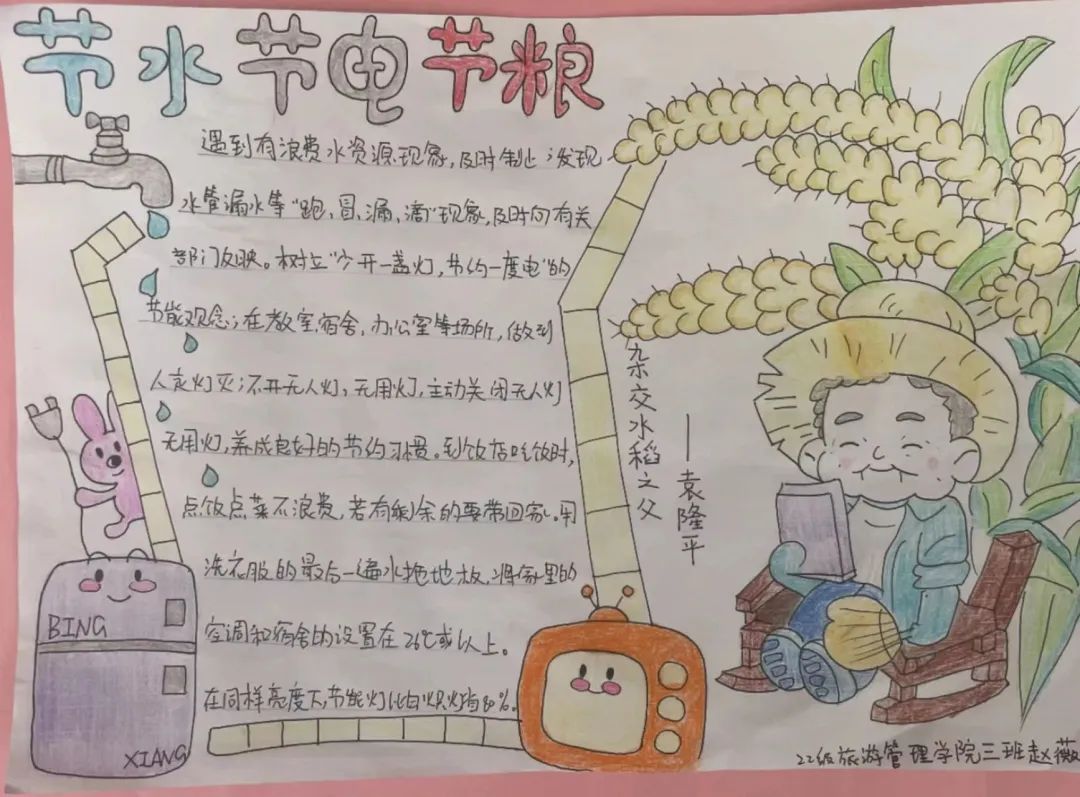 节水节电节粮
遇到有浪费水资源现象,及时制止;发现
水管漏水等“跑、冒、漏、滴”现象,及时向有关
部门反映。树立“少开一盏灯,节约一度电”的
节能观念;在教室宿舍,办公室等场所,做到
人走灯灭;不开无人灯;无用灯,主动关闭无人灯
无用灯,养成良好的节约习惯。到饭店吃饭时,
点饭点菜不浪费,若有剩余的要带回家。用
洗衣服的最后一遍水拖地板,将家里的
空调和宿舍的设置在26℃或以上。
在同样亮度下,节能灯比白炽灯省80%。
杂交水稻之父
——袁隆平
BING
XIANG
22级旅游管理学院三班赵薇